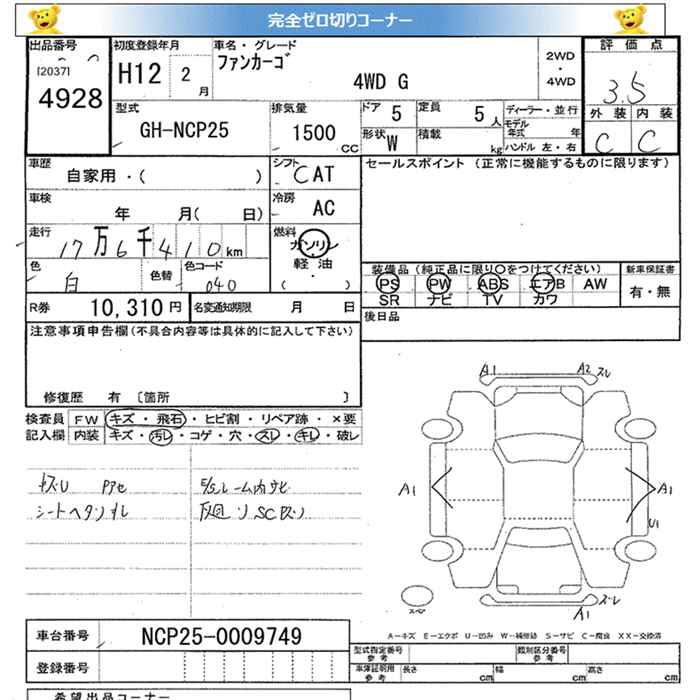 完全ゼロ切りコーナー
出品番号
[2037]
4928
初度登録年月
H12 2 月
車名・グレード
ファンカーゴ
4WD G
2WD
・
4WD
評価点
3.5
外装 内装
C C
型式
GH-NCP25
排気量
1500 CC
ドア 5
定員 5 人
形状 W
積載 kg
ディーラー・並行
モデル年式 年
ハンドル 左・右
車歴
自家用・( )
シフト
CAT
車検
年 月( 日)
冷房
AC
走行
17万6千410km
燃料
ガソリン
・
軽油
( )
色
白
色替
色コード
040
セールスポイント (正常に機能するものに限ります)
装備品 (純正品に限り○をつけてください)
新車保証書
PS PW ABS エアB AW
SR ナビ TV カワ
有・無
R券 10,310 円
名変通知期限 月 日
後日品
注意事項申告欄(不具合内容等は具体的に記入して下さい)
修復歴 有 〔箇所 〕
検査員
記入欄
FW キズ・飛石・ヒビ割・リペア跡・×要
内装 キズ・汚レ・コゲ・穴・スレ・キレ・破レ
シートヘタリ
A1 A2 スレ
A1
A1
U1
スペア
ズレ
A1
A-キズ E-エクボ U-凹み W-補修跡 S-サビ C-腐食 XX-交換済
車台番号 NCP25-0009749
登録番号
型式指定番号
参考
類別区分番号
参考
車庫証明用
参考
長さ cm 幅 cm 高さ cm
希望出品コーナー